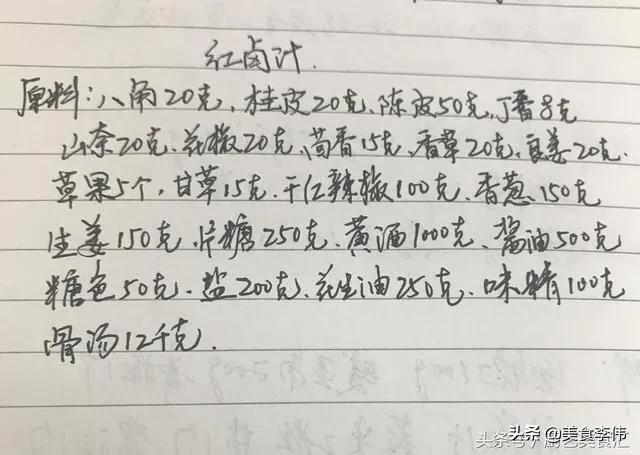 红卤汁.
原料:八角20克,桂皮20克、陈皮50克、丁香8克
山奈20克、花椒20克、茴香15克、香草20克、良姜20克.
草果5个,甘草15克、干红辣椒100克、香葱150克
生姜150克、片糖250克、黄酒1000克、酱油500克
糖色50克、盐200克、花生油250克、味精100克
骨汤12千克.
头条@美食李伟